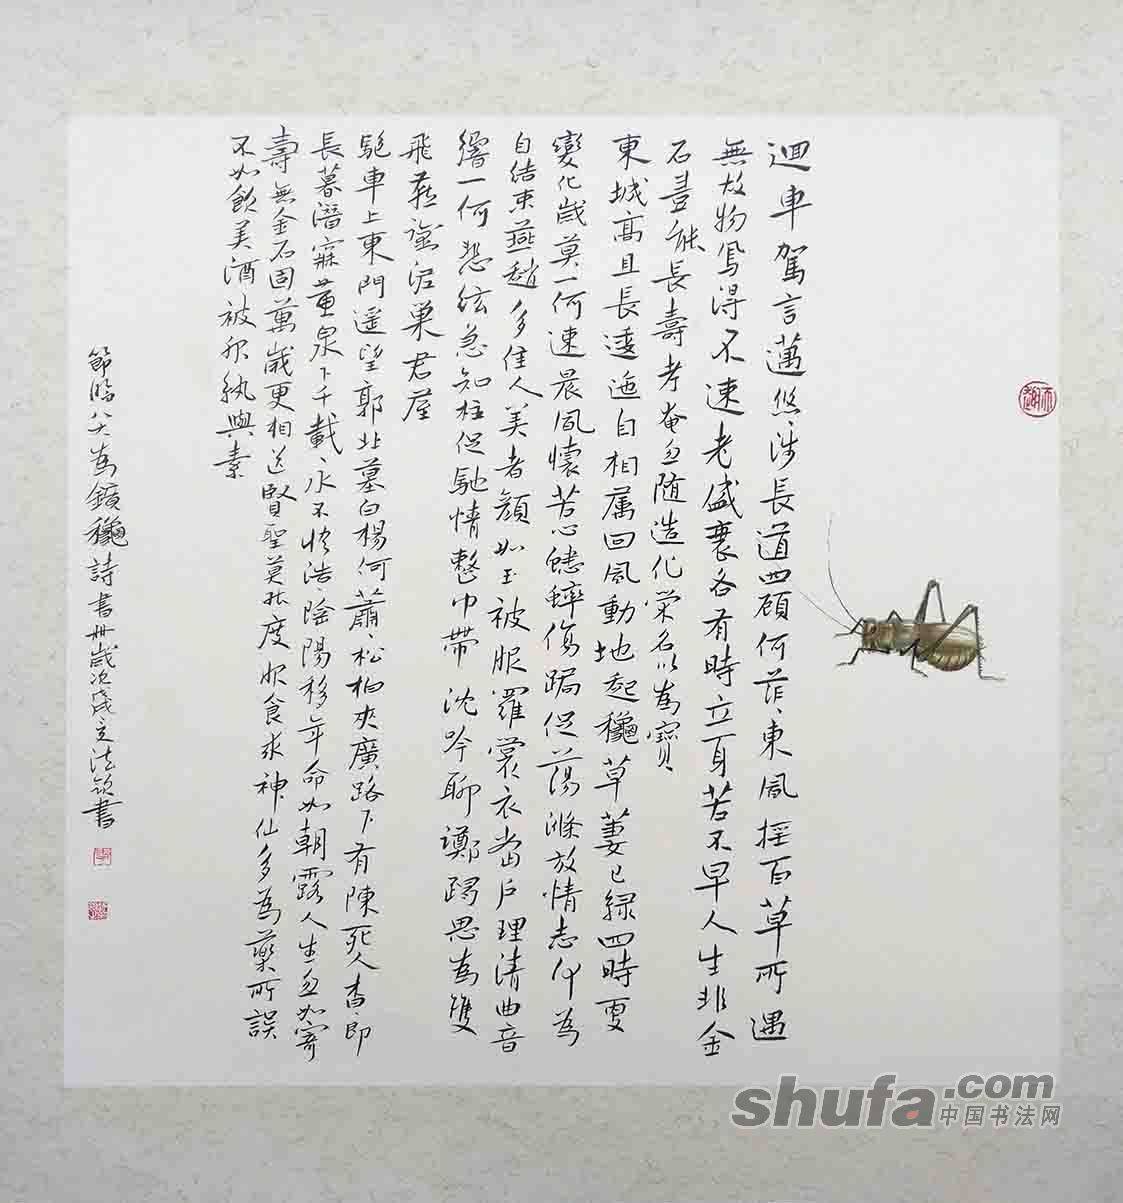 迴車駕言邁悠ミ涉長道四顧何茫ミ東風搖百草所遇
無故物焉得不速老盛衰各有時立身苦不早人生非金
石豈能長壽考奄忽隨造化榮名以為寶
東城高且長逶迤自相屬回風動地起龝草萋已綠四時更
變化歲莫一何速晨風懷苦心蟋蟀傷局促蕩滌放情志何為
自結束燕趙多佳人美者顏如玉被服羅裳衣當戶理清曲音
響一何悲絃急知柱促馳情整巾帶沈吟聊躑躅思為雙
飛燕銜泥巢君屋
驅車上東門遥望郭北墓白楊何蕭ミ松柏夾廣路下有陳死人杳ミ即
長暮潛寐黃泉下千載永不悟浩ミ陰陽移年命如朝露人生忽如寄
壽無金石固萬歲更相送賢聖莫能度服食求神仙多為藥所誤
不如飲美酒被服紈與素
節臨八大為鑛龝詩書冊歲次戊戌立法欽書
shufa.com
中国书法网